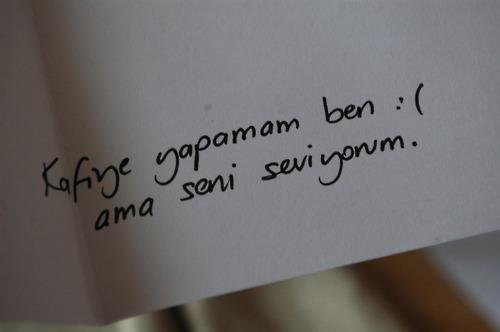 Kafiye yapamam ben :(
ama seni seviyorum.